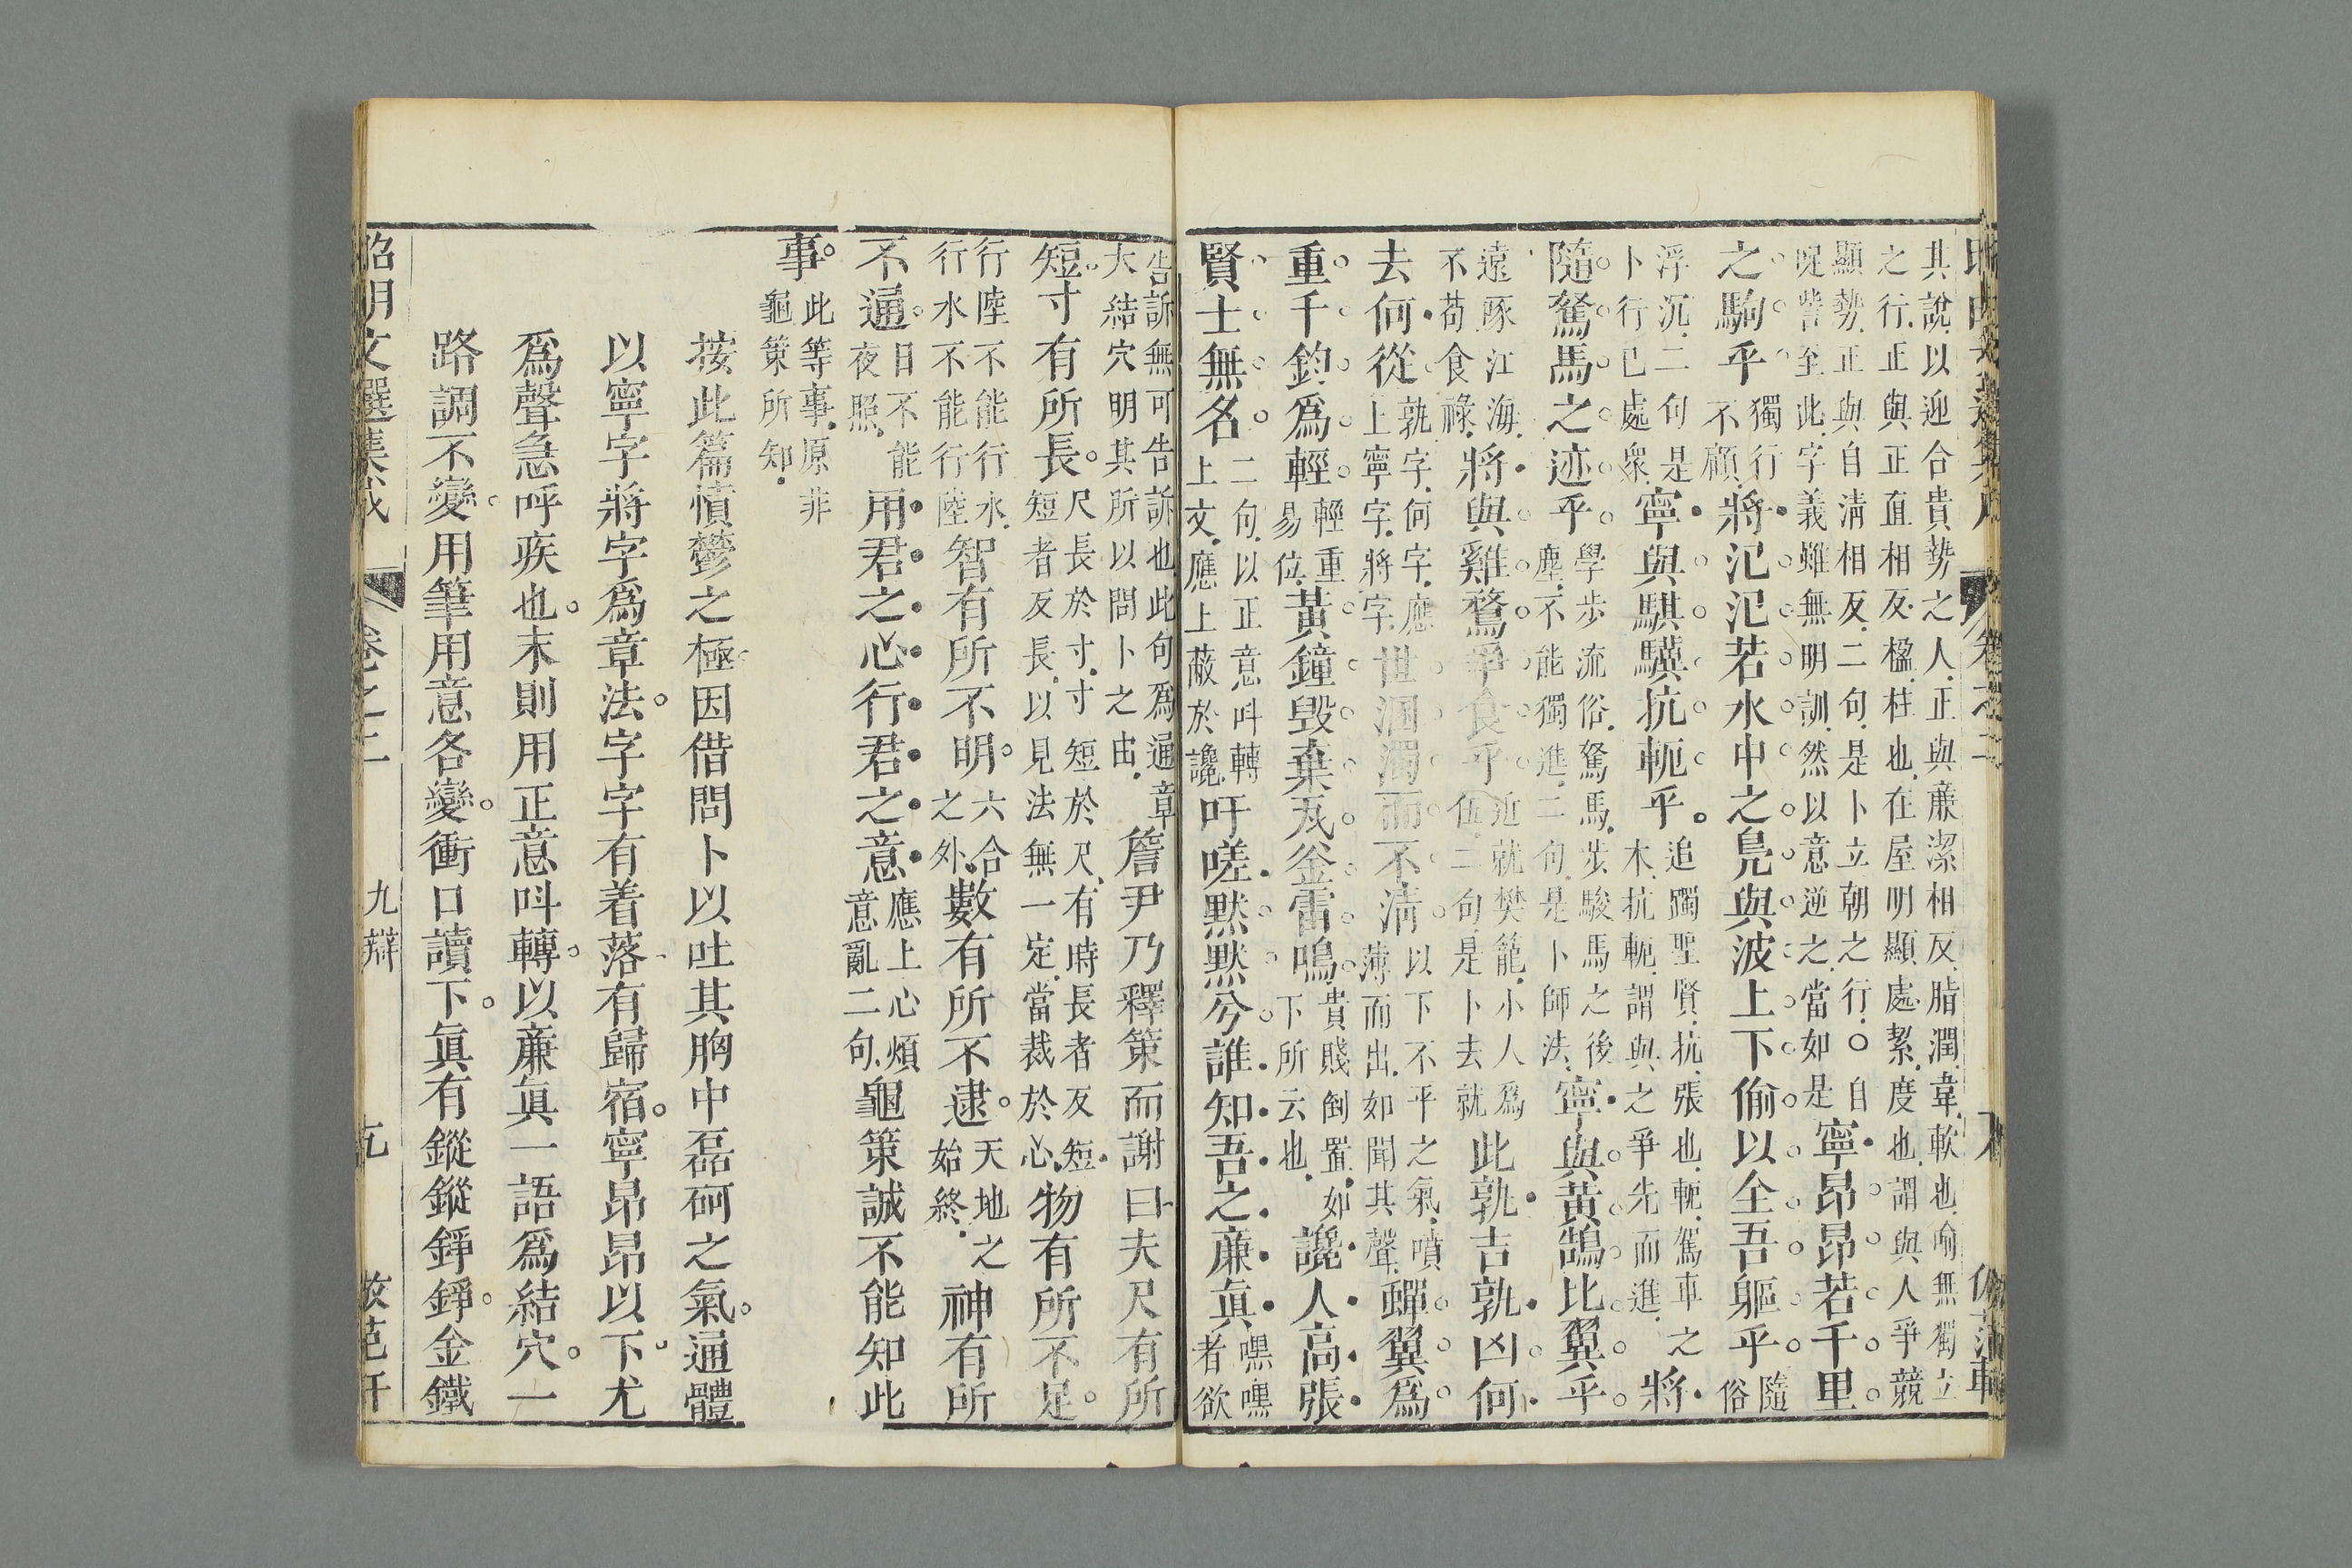 其說以迎合貴勢之人正與廉潔相反脂潤韋軟也喻無獨立
之行正與正直相反楹柱也在屋明顯處絜度也謂與人爭競
顯勢正與自淸相反二句是卜立朝之行○自
哫訾至此字義雖無明訓然以意逆之當如是
寧昂昂若千里
之駒乎
獨行
不顧
將氾氾若水中之鳧與波上下偷以全吾軀乎
隨俗
浮沉二句是
卜行已處衆
寧與騏驥抗軛乎
追躅聖賢抗張也軛駕車之
木抗軛謂與之爭先而進
將
隨駑馬之迹乎
學步流俗駑馬步駿馬之後
塵不能獨進二句是卜師法
寧與黃鵠比翼乎
遠啄江海
不苟食祿
將與雞鶩爭食乎
近就樊籠小人爲
伍二句是卜去就
此孰吉孰凶何
去何從
孰字何字應
上寧字將字
世溷濁而不淸
以下不平之氣噴
薄而出如聞其聲
蟬翼爲
重千鈞爲輕
輕重
易位
黃鐘毀棄瓦釜雷鳴
貴賤倒置如
下所云也
讒人高張
賢士無名
二句以正意呌轉
上文應上蔽於讒
吁嗟默默兮誰知吾之廉眞
嘿嘿
者欲
告訴無可告訴也此句爲通章
大結穴明其所以問卜之由
詹尹乃釋策而謝曰夫尺有所
短寸有所長
尺長於寸寸短於尺有時長者反短
短者反長以見法無一定當裁於心
物有所不足
行陸不能行水
行水不能行陸
智有所不明
六合
之外
數有所不逮
天地之
始終
神有所
不通
日不能
夜照
用君之心行君之意
應上心煩
意亂二句
龜策誠不能知此
事
此等事原非
龜策所知
按此篇憤鬱之極因借問卜以吐其胸中磊砢之氣通體
以寧字將字爲章法字字有着落有歸宿寧昂昂以下尤
爲聲急呼疾也末則用正意呌轉以廉眞一語爲結穴一
路調不變用筆用意各變衝口讀下眞有鏦鏦錚錚金鐵
昭明文選集成
卷之二
九辯